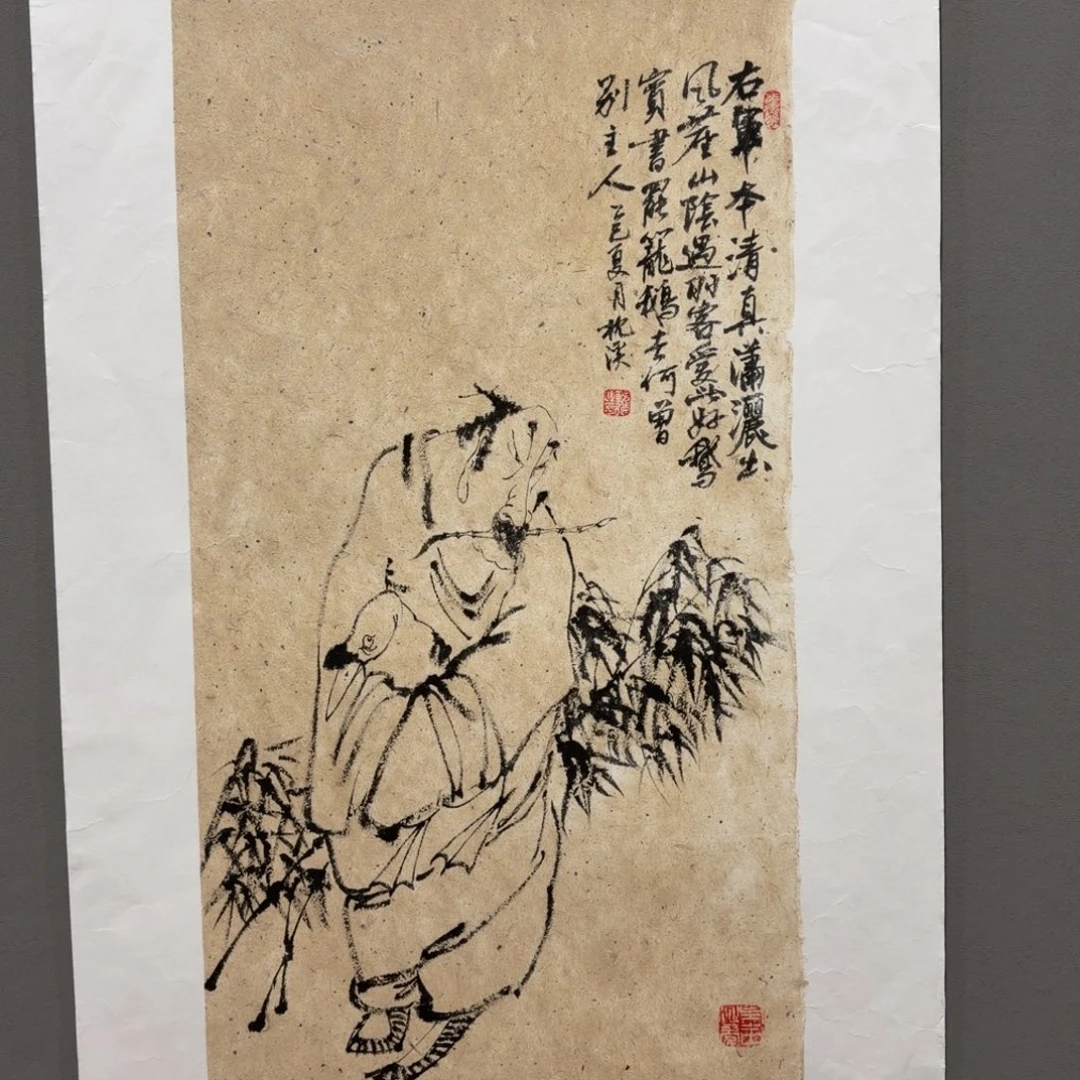 右軍本清真瀟灑出
風塵山陰遇羽客愛此好鵞
賓書罷籠鵝去何曾
别主人 乙巳夏月枕溪